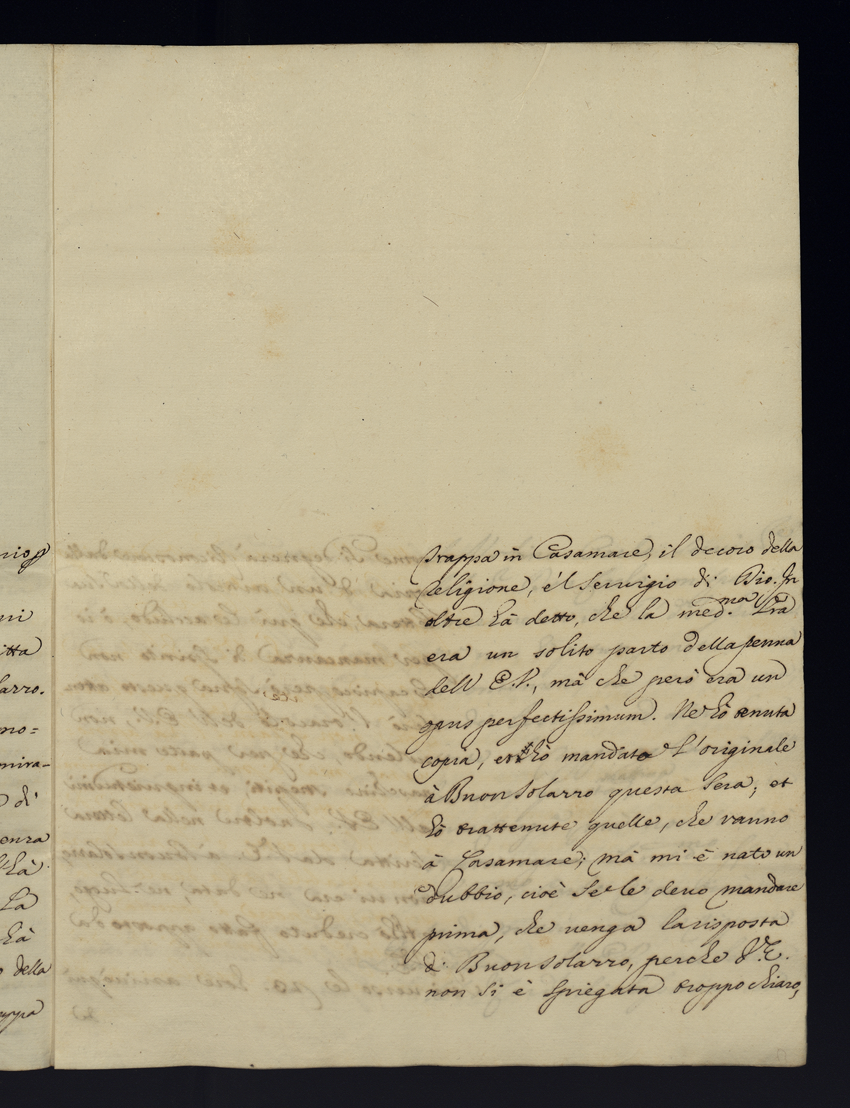 Trappa in Casamare, il decoro della
Religione, e'l Servigio di Dio. In
oltre hà detto, che la med.ma Lrã
era un solito parto della penna
dell' E.V., mà che però era un
opus perfectissimum. Ne hò tenuta
copia, et hò mandato l'originale
à Buon Solarro questa Sera, et
hò trattenute quelle, che vanno
à Casamare; mà mi è nato un
dubbio, cioè se le devo mandare
prima, che venga la risposta
di Buon Solarro, perche V.E.
non si è spiegata troppo chiaro,
itta
larro.
mo=
mira-
di
enza
hà
La
hà
della